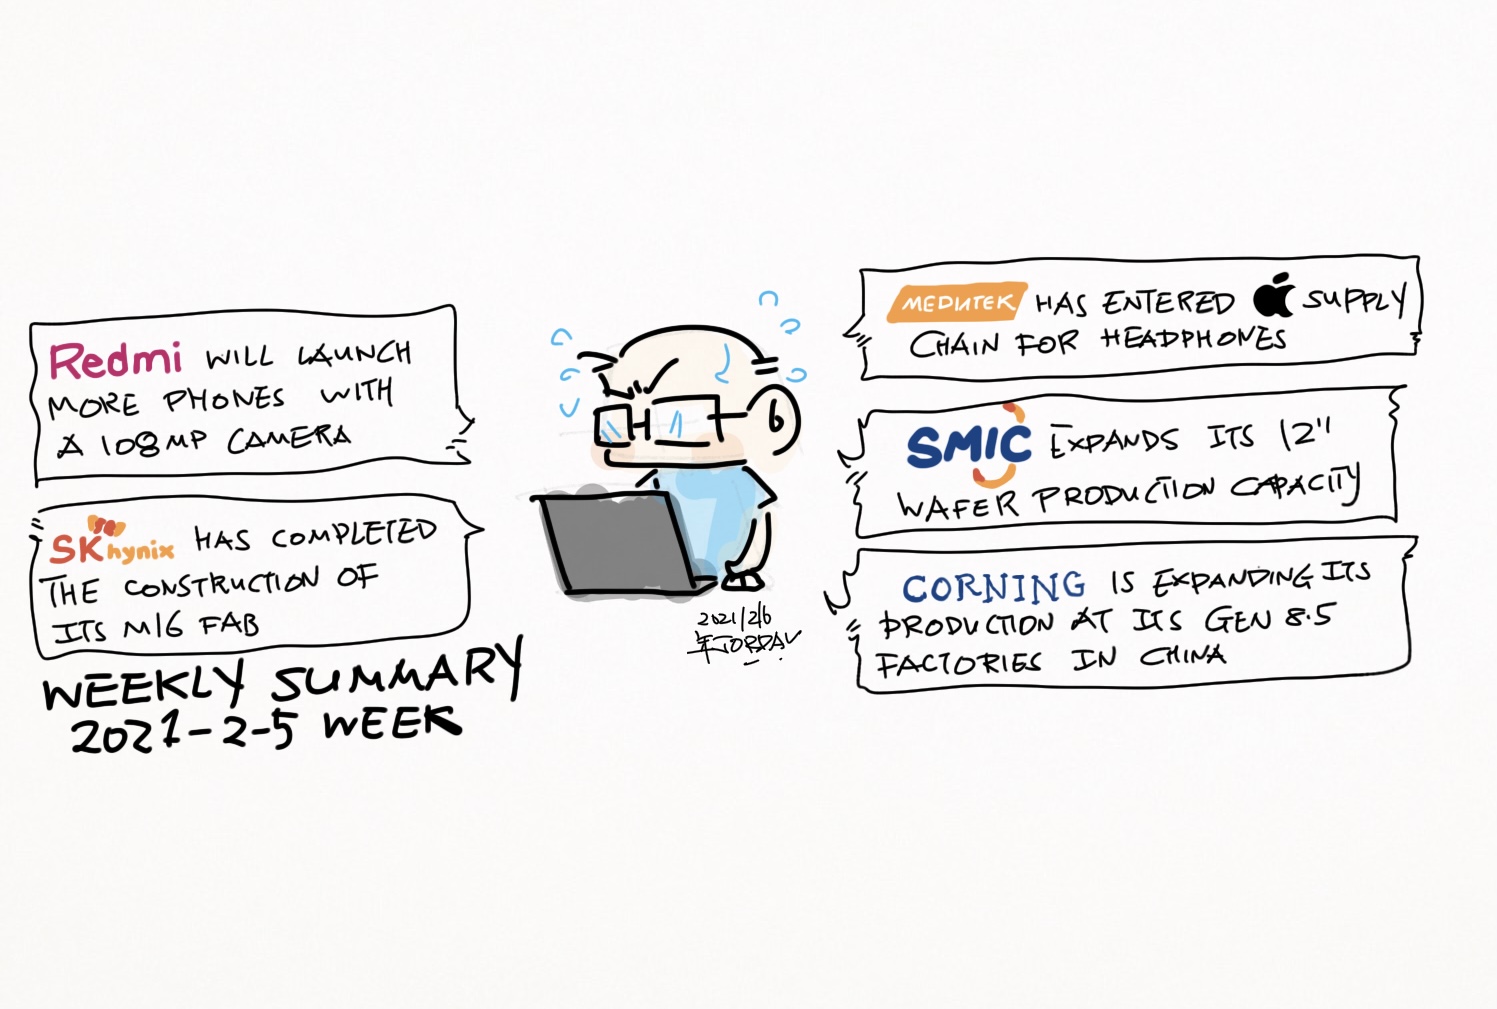 Redmi WILL LAUNCH
MORE PHONES WITH
A 108MP CAMERA
SK hynix HAS COMPLETED
THE CONSTRUCTION OF
ITS M16 FAB
WEEKLY SUMMARY
2021-2-5 WEEK
2021/2/6
MEDIATEK HAS ENTERED SUPPLY
CHAIN FOR HEADPHONES
SMIC EXPANDS ITS 12"
WAFER PRODUCTION CAPACITY
CORNING IS EXPANDING ITS
PRODUCTION AT ITS GEN 8.5
FACTORIES IN CHINA